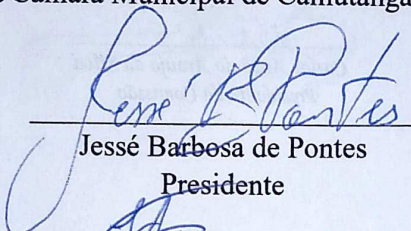 Câmara Municipal de Camutanga
Jessé B Pontes
Jessé Barbosa de Pontes
Presidente